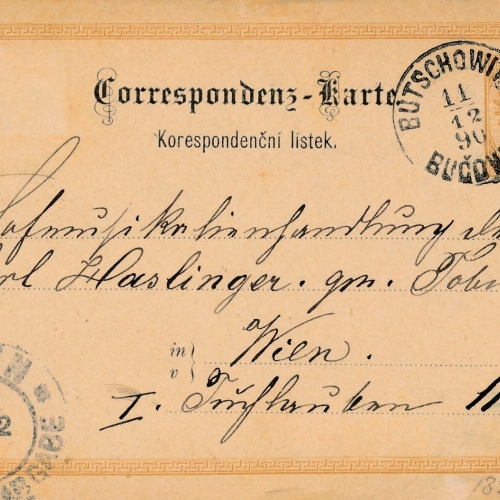 Correspondenz-Karte
Korespondenční lístek.
BUTSCHOWI
11
12
90
BUČOV
Hofmusikalienhandlung
Haslinger. qm. Tob
in
v
Wien.
I. Tuchlauben 11